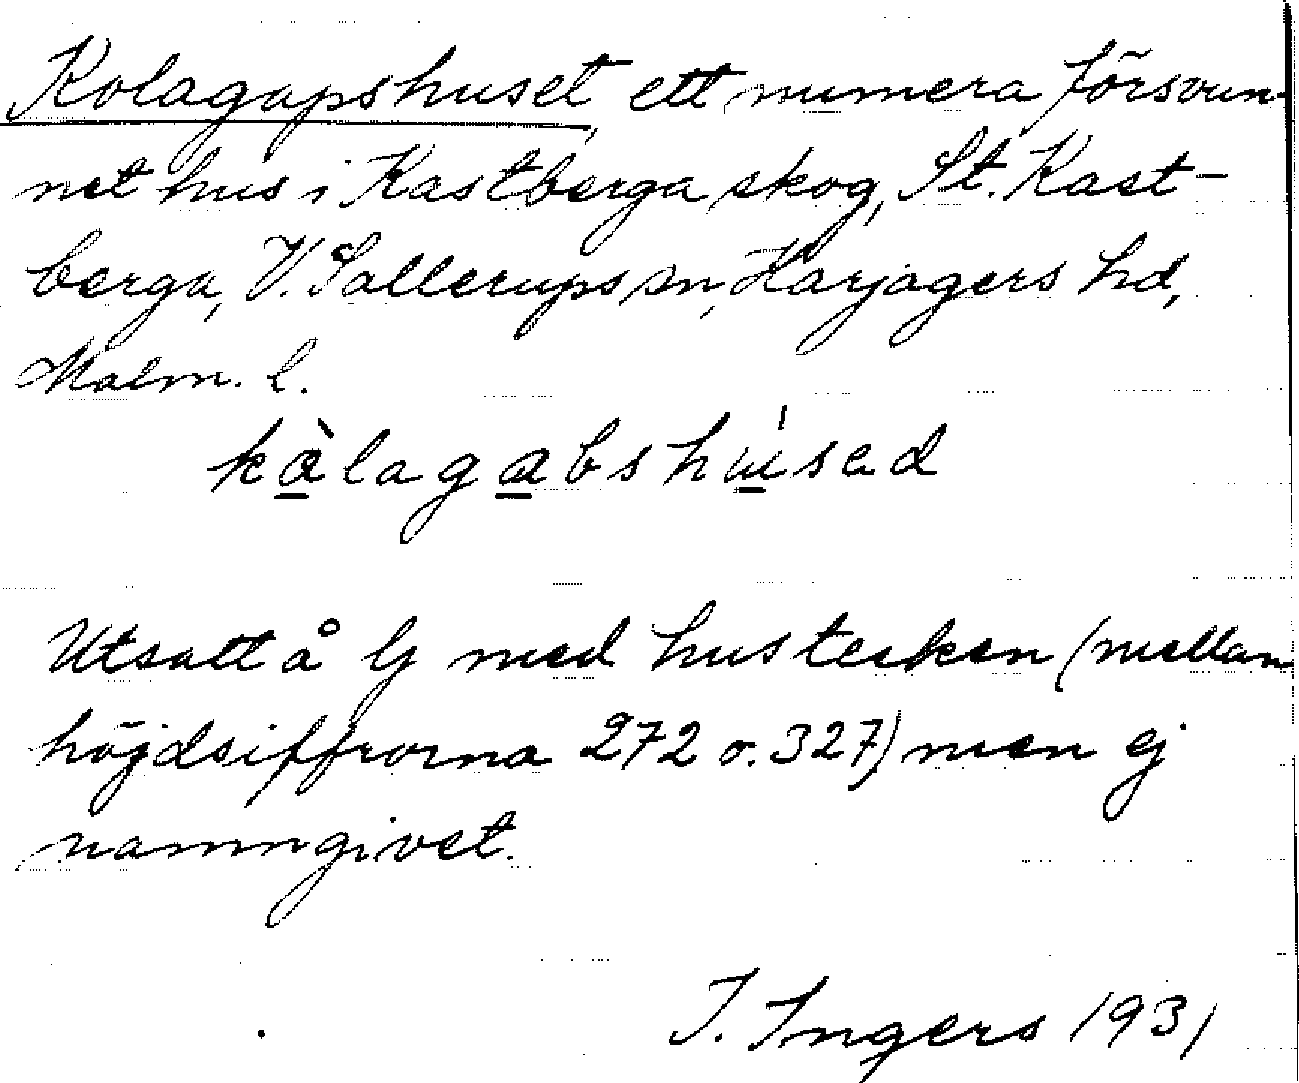 Kolagapshuset, ett numera försvun-
net hus i Kastberga skog, St. Kast-
berga, V. Sallerups sn, Harjagers hd,
Malm. l.
kàlagabshúsad
Utsatt å G med hustecken (mellan
höjdsiffrorna 272 o. 327) men ej
namngivet.
I. Ingers 1931